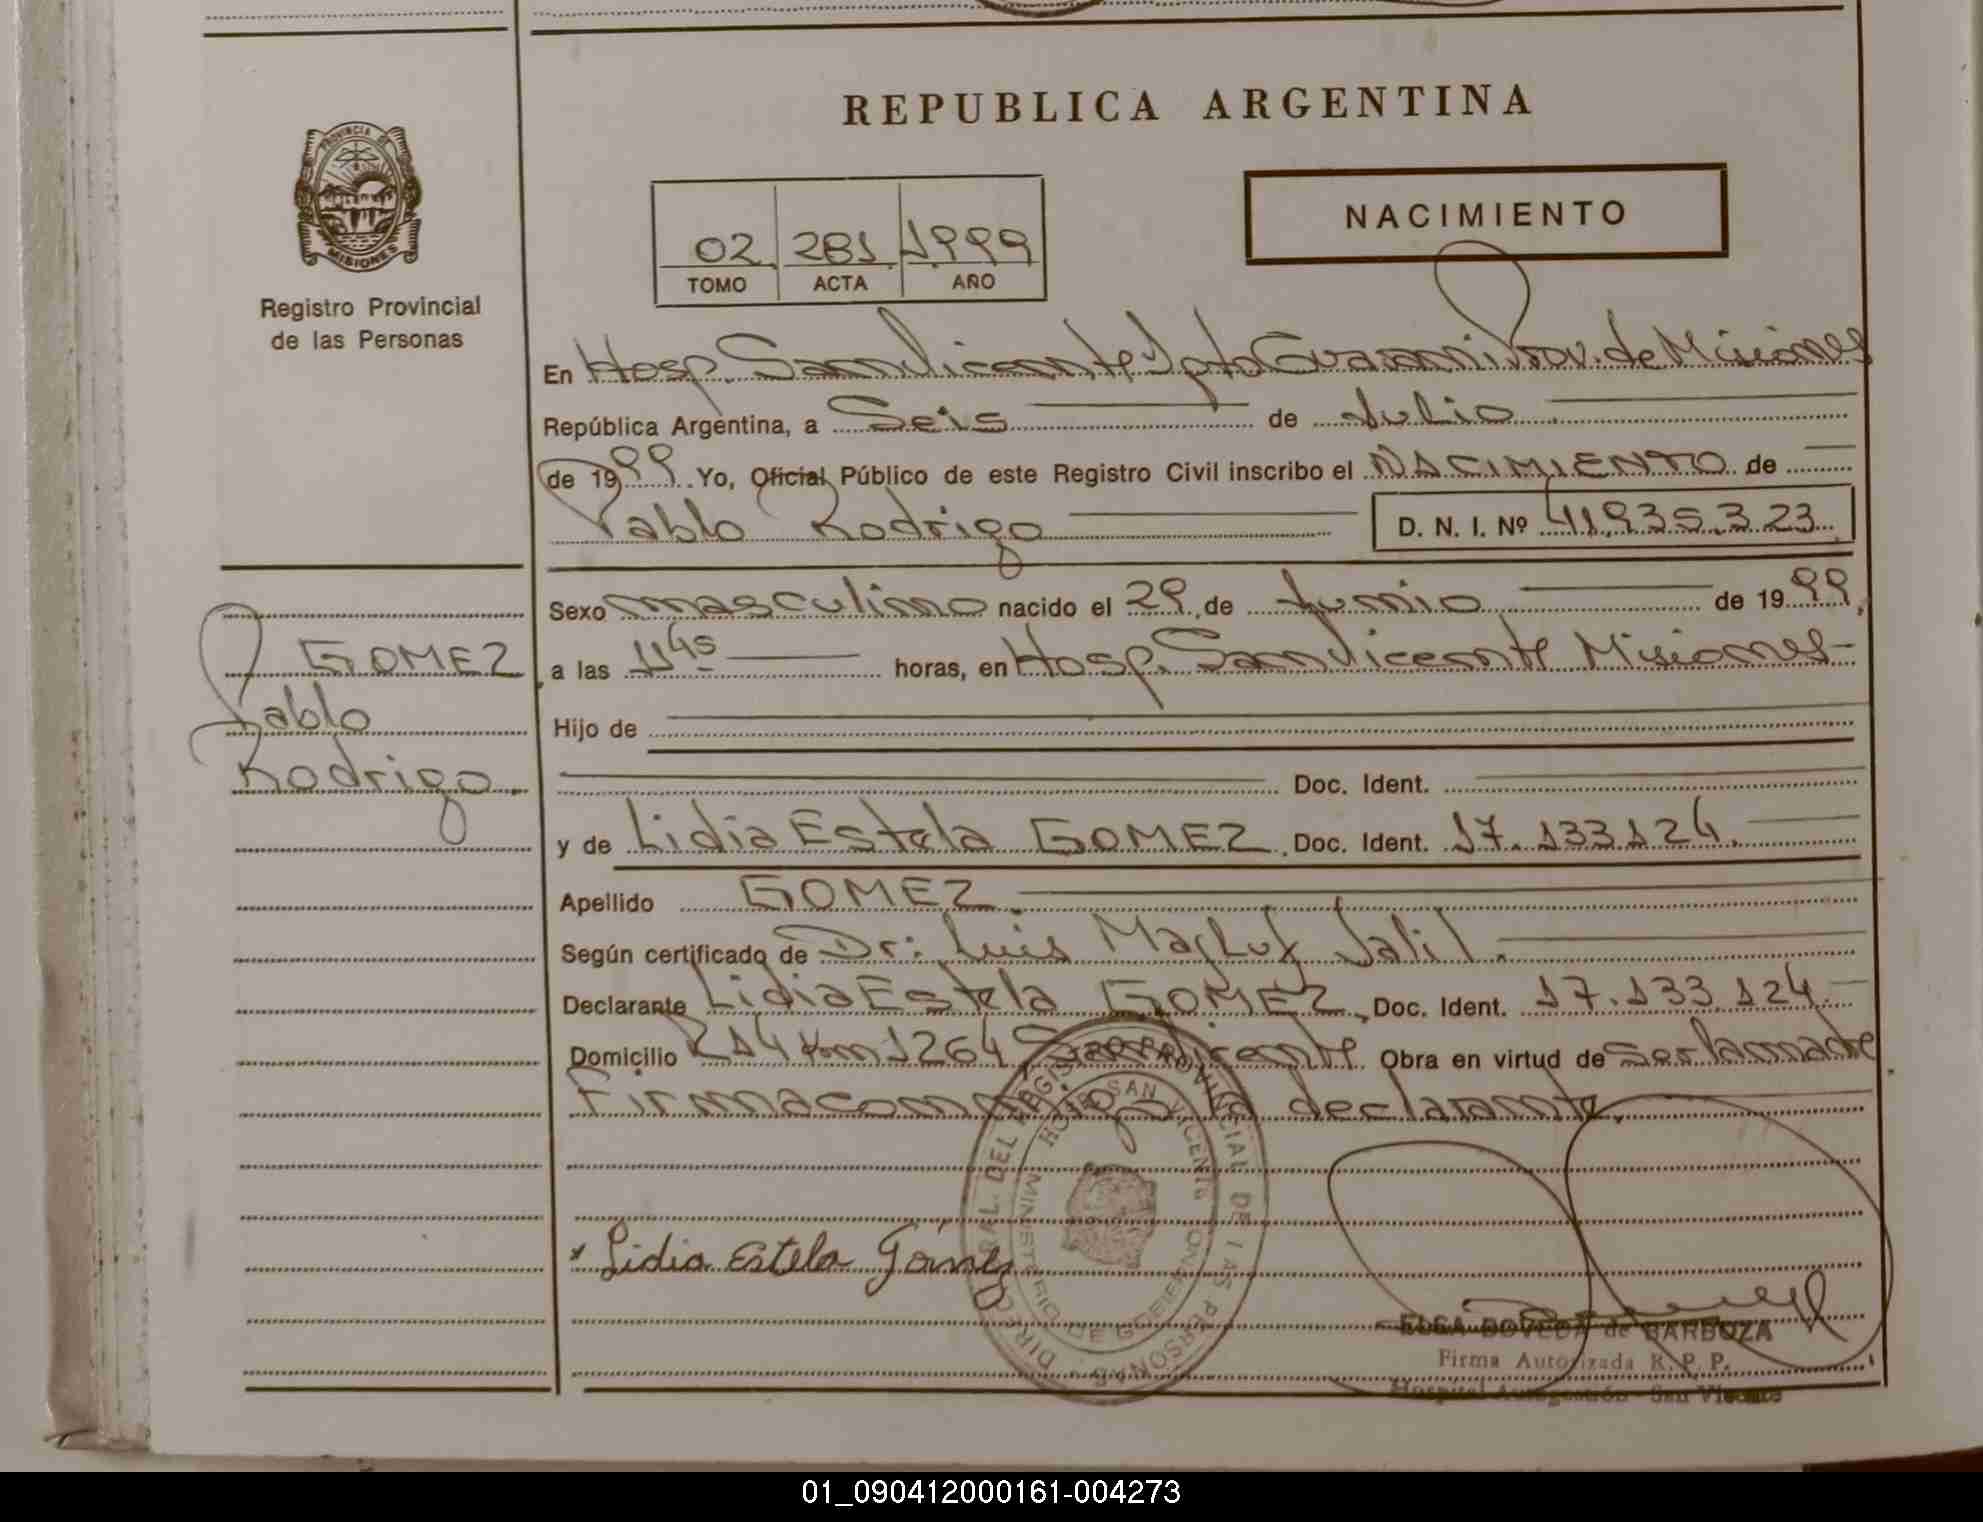 REPUBLICA ARGENTINA
PROVINCIA DE MISIONES
Registro Provincial
de las Personas
02 281 1999
TOMO ACTA AÑO
NACIMIENTO
En Hosp. San Vicente Dpto Guarani Prov. de Misiones
República Argentina, a Seis de Julio
de 1999 Yo, Oficial Público de este Registro Civil inscribo el NACIMIENTO de
Pablo Rodrigo D. N. I. Nº 41.935.323
Sexo masculino nacido el 29 de Junio de 1999,
a las 11 45 horas, en Hosp. San Vicente Misiones
Hijo de
Doc. Ident.
y de Lidia Estela GOMEZ. Doc. Ident. 17.133.124.
Apellido GOMEZ.
Según certificado de Dr: Luis Jalil.
Declarante Lidia Estela GOMEZ, Doc. Ident. 17.133.124.
Domicilio R14 Km 1264 San Vicente. Obra en virtud de ser la madre
Firma conmigo la declarante.
GOMEZ
Pablo
Rodrigo.
DIRECC. GRAL. DEL REGISTRO PROVINCIAL DE LAS PERSONAS
SAN VICENTE MISIONES
MINISTERIO DE GOBIERNO
Lidia Estela Gómez
ELSA DOVEDA de BARBOZA
Firma Autorizada R. P. P.
Hospital Autogestión - San Vicente
01_090412000161-004273